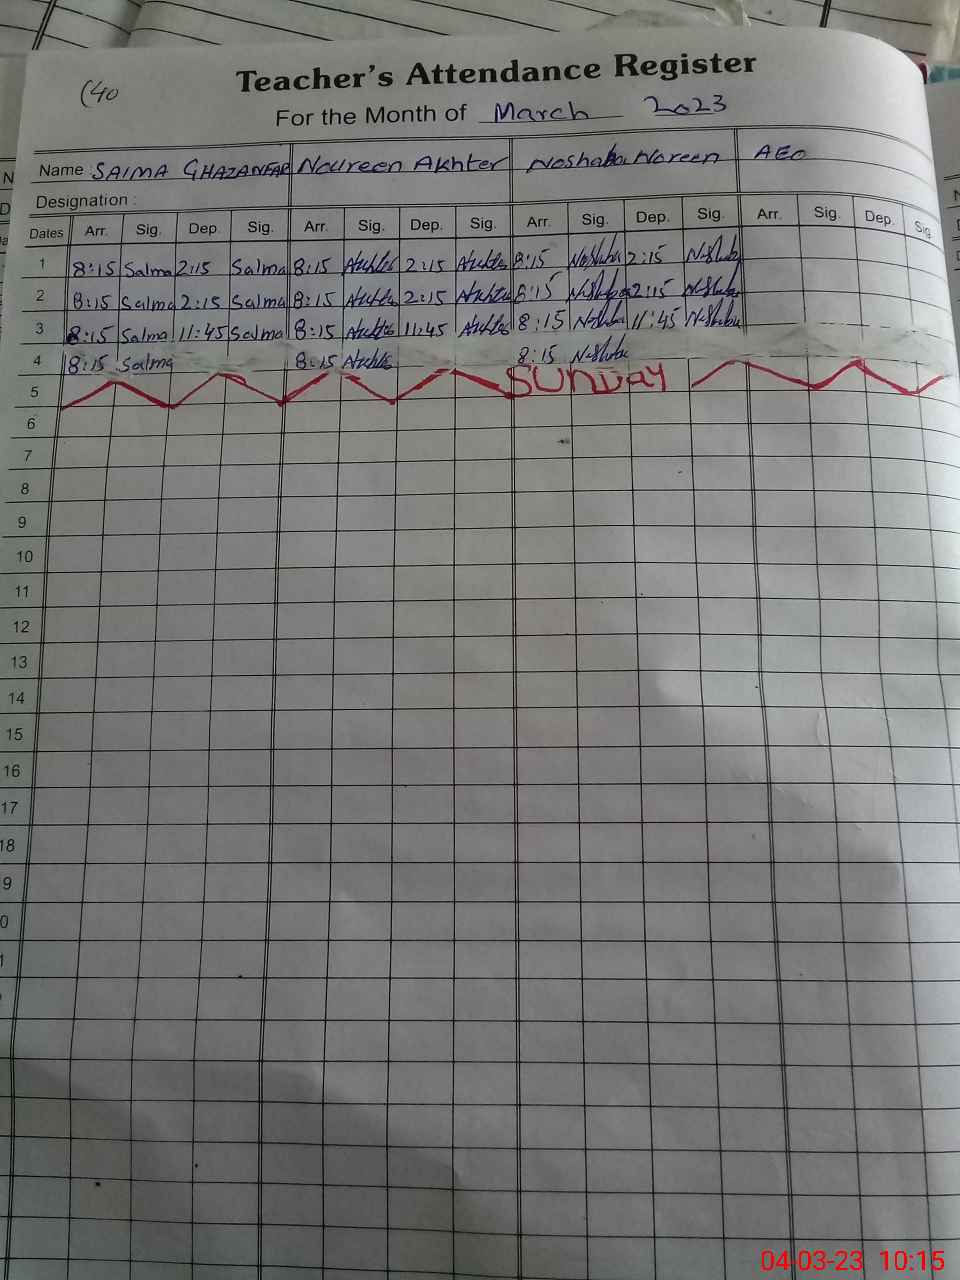 (40
Teacher's Attendance Register
For the Month of March 2023
Name SAIMA GHAZANFAR Noureen Akhter Noshaba Noreen AEO
Designation :
Dates Arr. Sig. Dep. Sig. Arr. Sig. Dep. Sig. Arr. Sig. Dep. Sig. Arr. Sig. Dep. Sig.
1 8:15 Saima 2:15 Saima 8:15 Akhter 2:15 Akhter 8:15 Noshaba 2:15 Noshaba
2 8:15 Saima 2:15 Saima 8:15 Akhter 2:15 Akhter 8:15 Noshaba 2:15 Noshaba
3 8:15 Saima 11:45 Saima 8:15 Akhter 11:45 Akhter 8:15 Noshaba 11:45 Noshaba
4 8:15 Saima 8:15 Akhter 8:15 Noshaba
5 SUNDAY
6
7
8
9
10
11
12
13
14
15
16
17
18
9
0
1
04-03-23 10:15